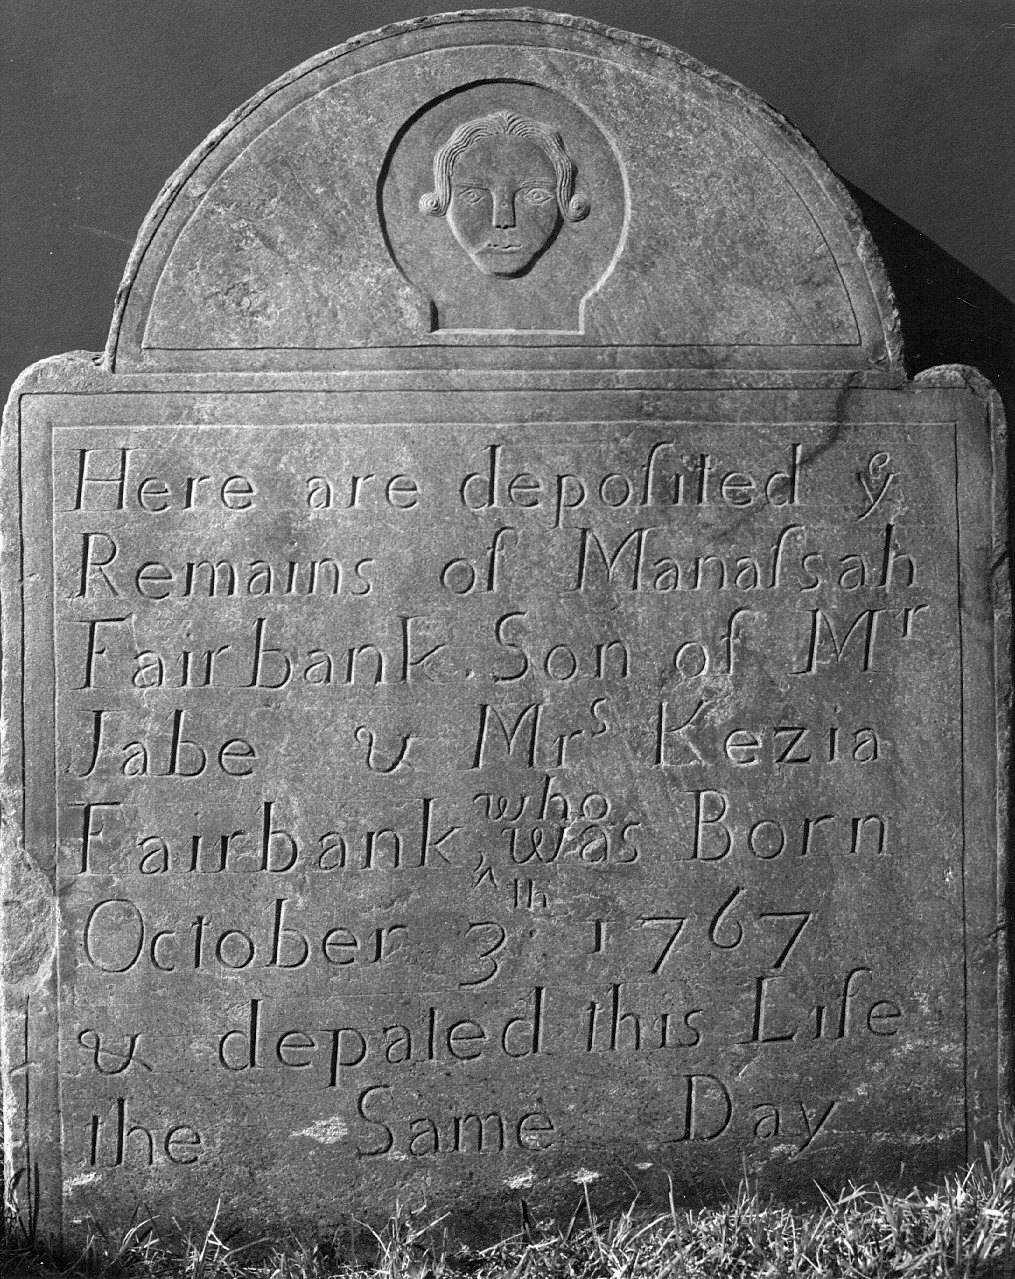 Here are depoſited yͤ
Remains of Manaſsah
Fairbank. Son of Mʳ
Jabe & Mrˢ Kezia
who
Fairbank ‸ was Born
October 3ᵗʰ 1767
& depaled this Life
the Same Day